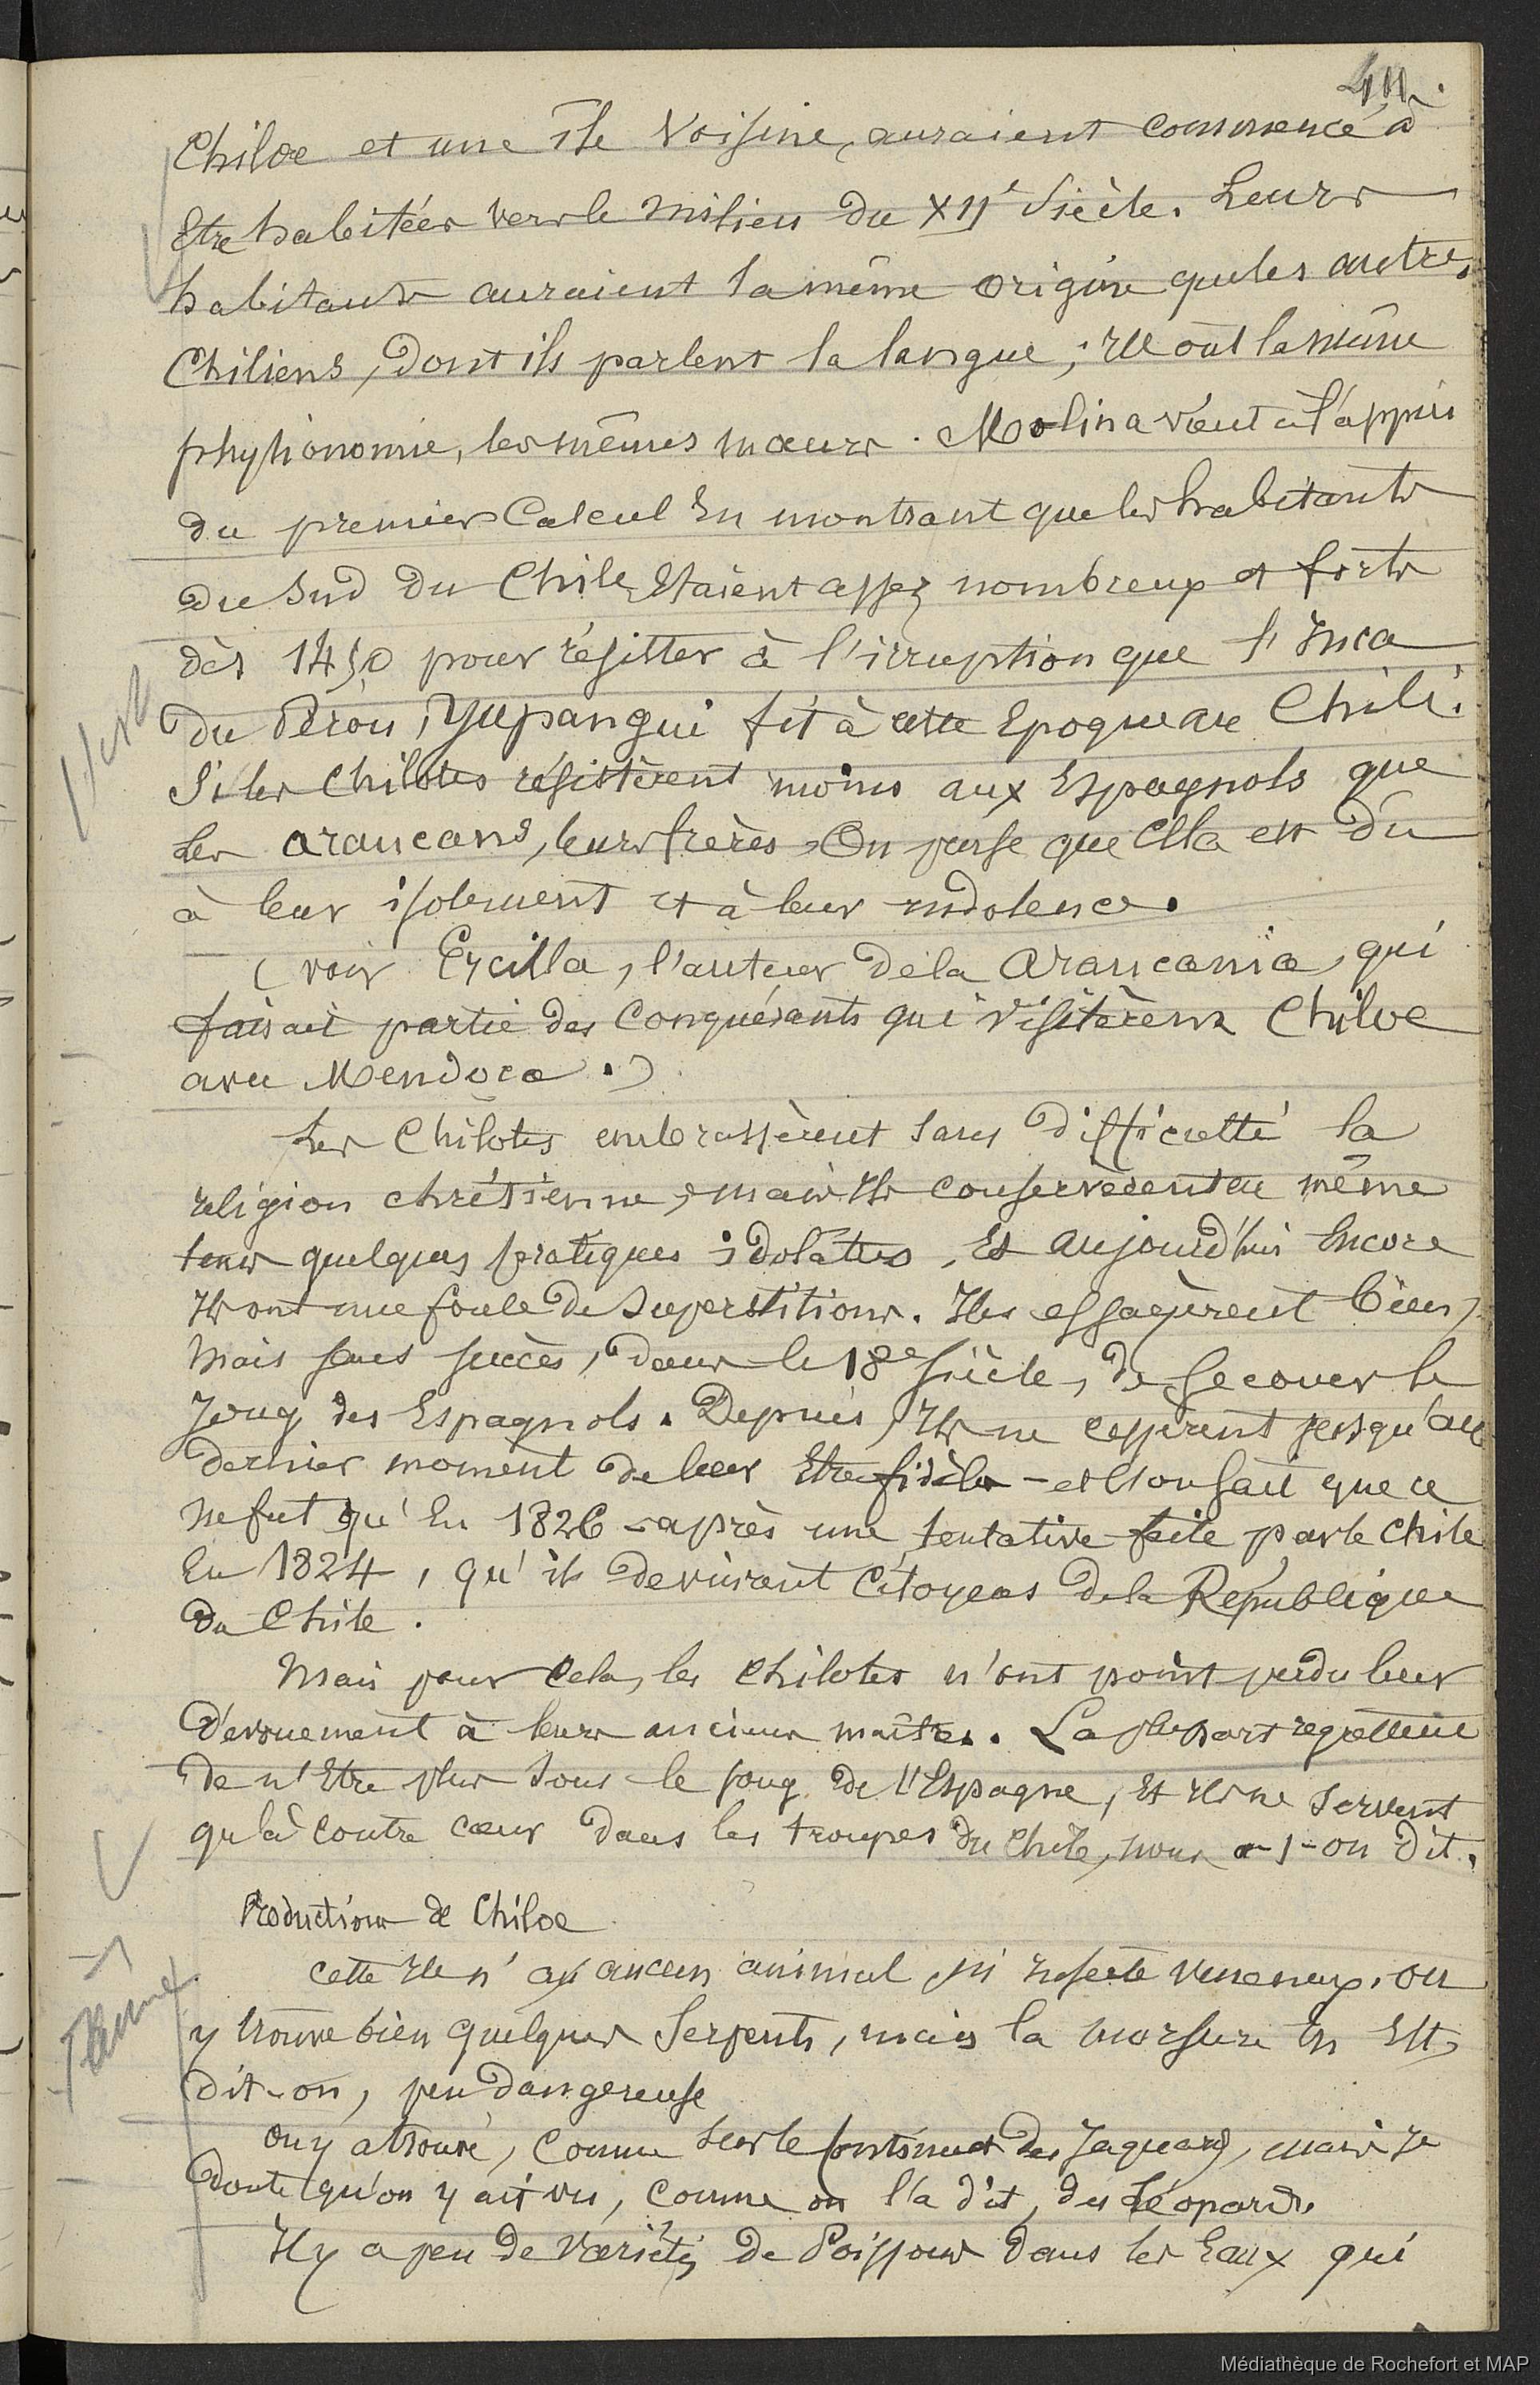 411.
Chiloe et une île voisine, auraient commencé à
être habitées vers le milieu du XIIe siècle. Leurs
habitants auraient la même origine que les autres
Chiliens, dont ils parlent la langue ; ils ont la même
physionomie, les mêmes mœurs. Molina vient à l'appui
du premier calcul en montrant que les habitants
du sud du Chile étaient assez nombreux et forts
dès 1450 pour résister à l'irruption que l'Inca
du Pérou, Yupangui fit à cette époque au Chili.
Si les Chilotes résistèrent moins aux Espagnols que
les araucans, leurs frères, on pense que cela est dû
à leur isolement et à leur indolence.
( voir Ercilla, l'auteur de la Araucania, qui
faisait partie des conquérants qui visitèrent Chiloe
avec Mendoca.)
Les Chilotes embrassèrent sans difficulté la
religion chrétienne, mais ils conservèrent en même
tems quelques pratiques idolâtres, et aujourd'hui encore
ils ont une foule de superstitions. Ils essayèrent bien,
mais sans succès, dans le 18e siècle, de secouer le
joug des Espagnols. Depuis, ils ne cessèrent jusqu'au
dernier moment de leur être fidèles - et l'on sait que ce
ne fut qu'en 1826 - après une tentative faite par le Chile
en 1824, qu'ils devinrent citoyens de la République
du Chile.
Mais pour cela, les Chilotes n'ont point perdu leur
dévouement à leurs anciens maîtres. La plupart regrettent
de n'être plus sous le joug de l'Espagne, et ils ne servent
qu'à contre cœur dans les troupes du Chile, nous a-t-on dit.
Productions de Chiloe
Cette île n'a aucun animal ni insecte veneneux. On
y trouve bien quelques serpents, mais la morsure en est,
dit-on, peu dangereuse
On y a trouvé, comme sur le continent des Jaguars, mais je
doute qu'on y ait vu, comme on l'a dit, des Léopards.
Il y a peu de variétés de Poissons dans les eaux qui
Médiathèque de Rochefort et MAP